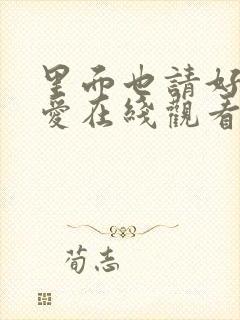 里而也請好
愛在綫觀看
荀志